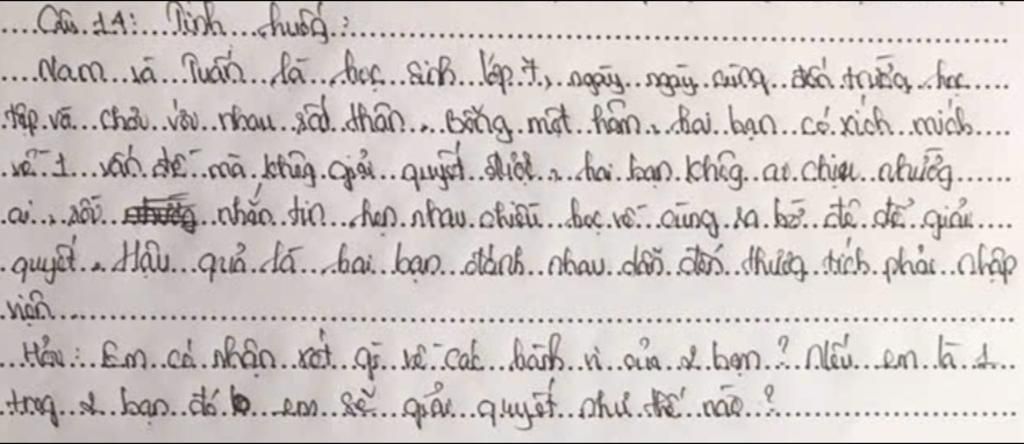 Câu 14: Tình huống:
Nam và Tuấn là học sinh lớp 7, ngày ngày cùng đến trường học
tập và chơi với nhau rất thân. Bỗng một hôm, hai bạn có xích mích
về 1 vấn đề mà không giải quyết được, hai bạn không ai chịu nhường
ai, rồi nhắn tin hẹn nhau chiều học về cùng ra bờ đê để giải
quyết. Hậu quả là hai bạn đánh nhau dẫn đến thương tích phải nhập
viện
Hỏi: Em có nhận xét gì về các hành vi của 2 bạn? Nếu em là 1
trong 2 bạn đó em sẽ giải quyết như thế nào?